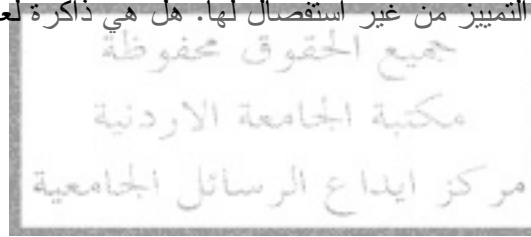 التمييز من غير استفصال لها. هل هي ذاكرة
جميع الحقوق محفوظة
مكتبة الجامعة الاردنية
مركز ايداع الرسائل الجامعية